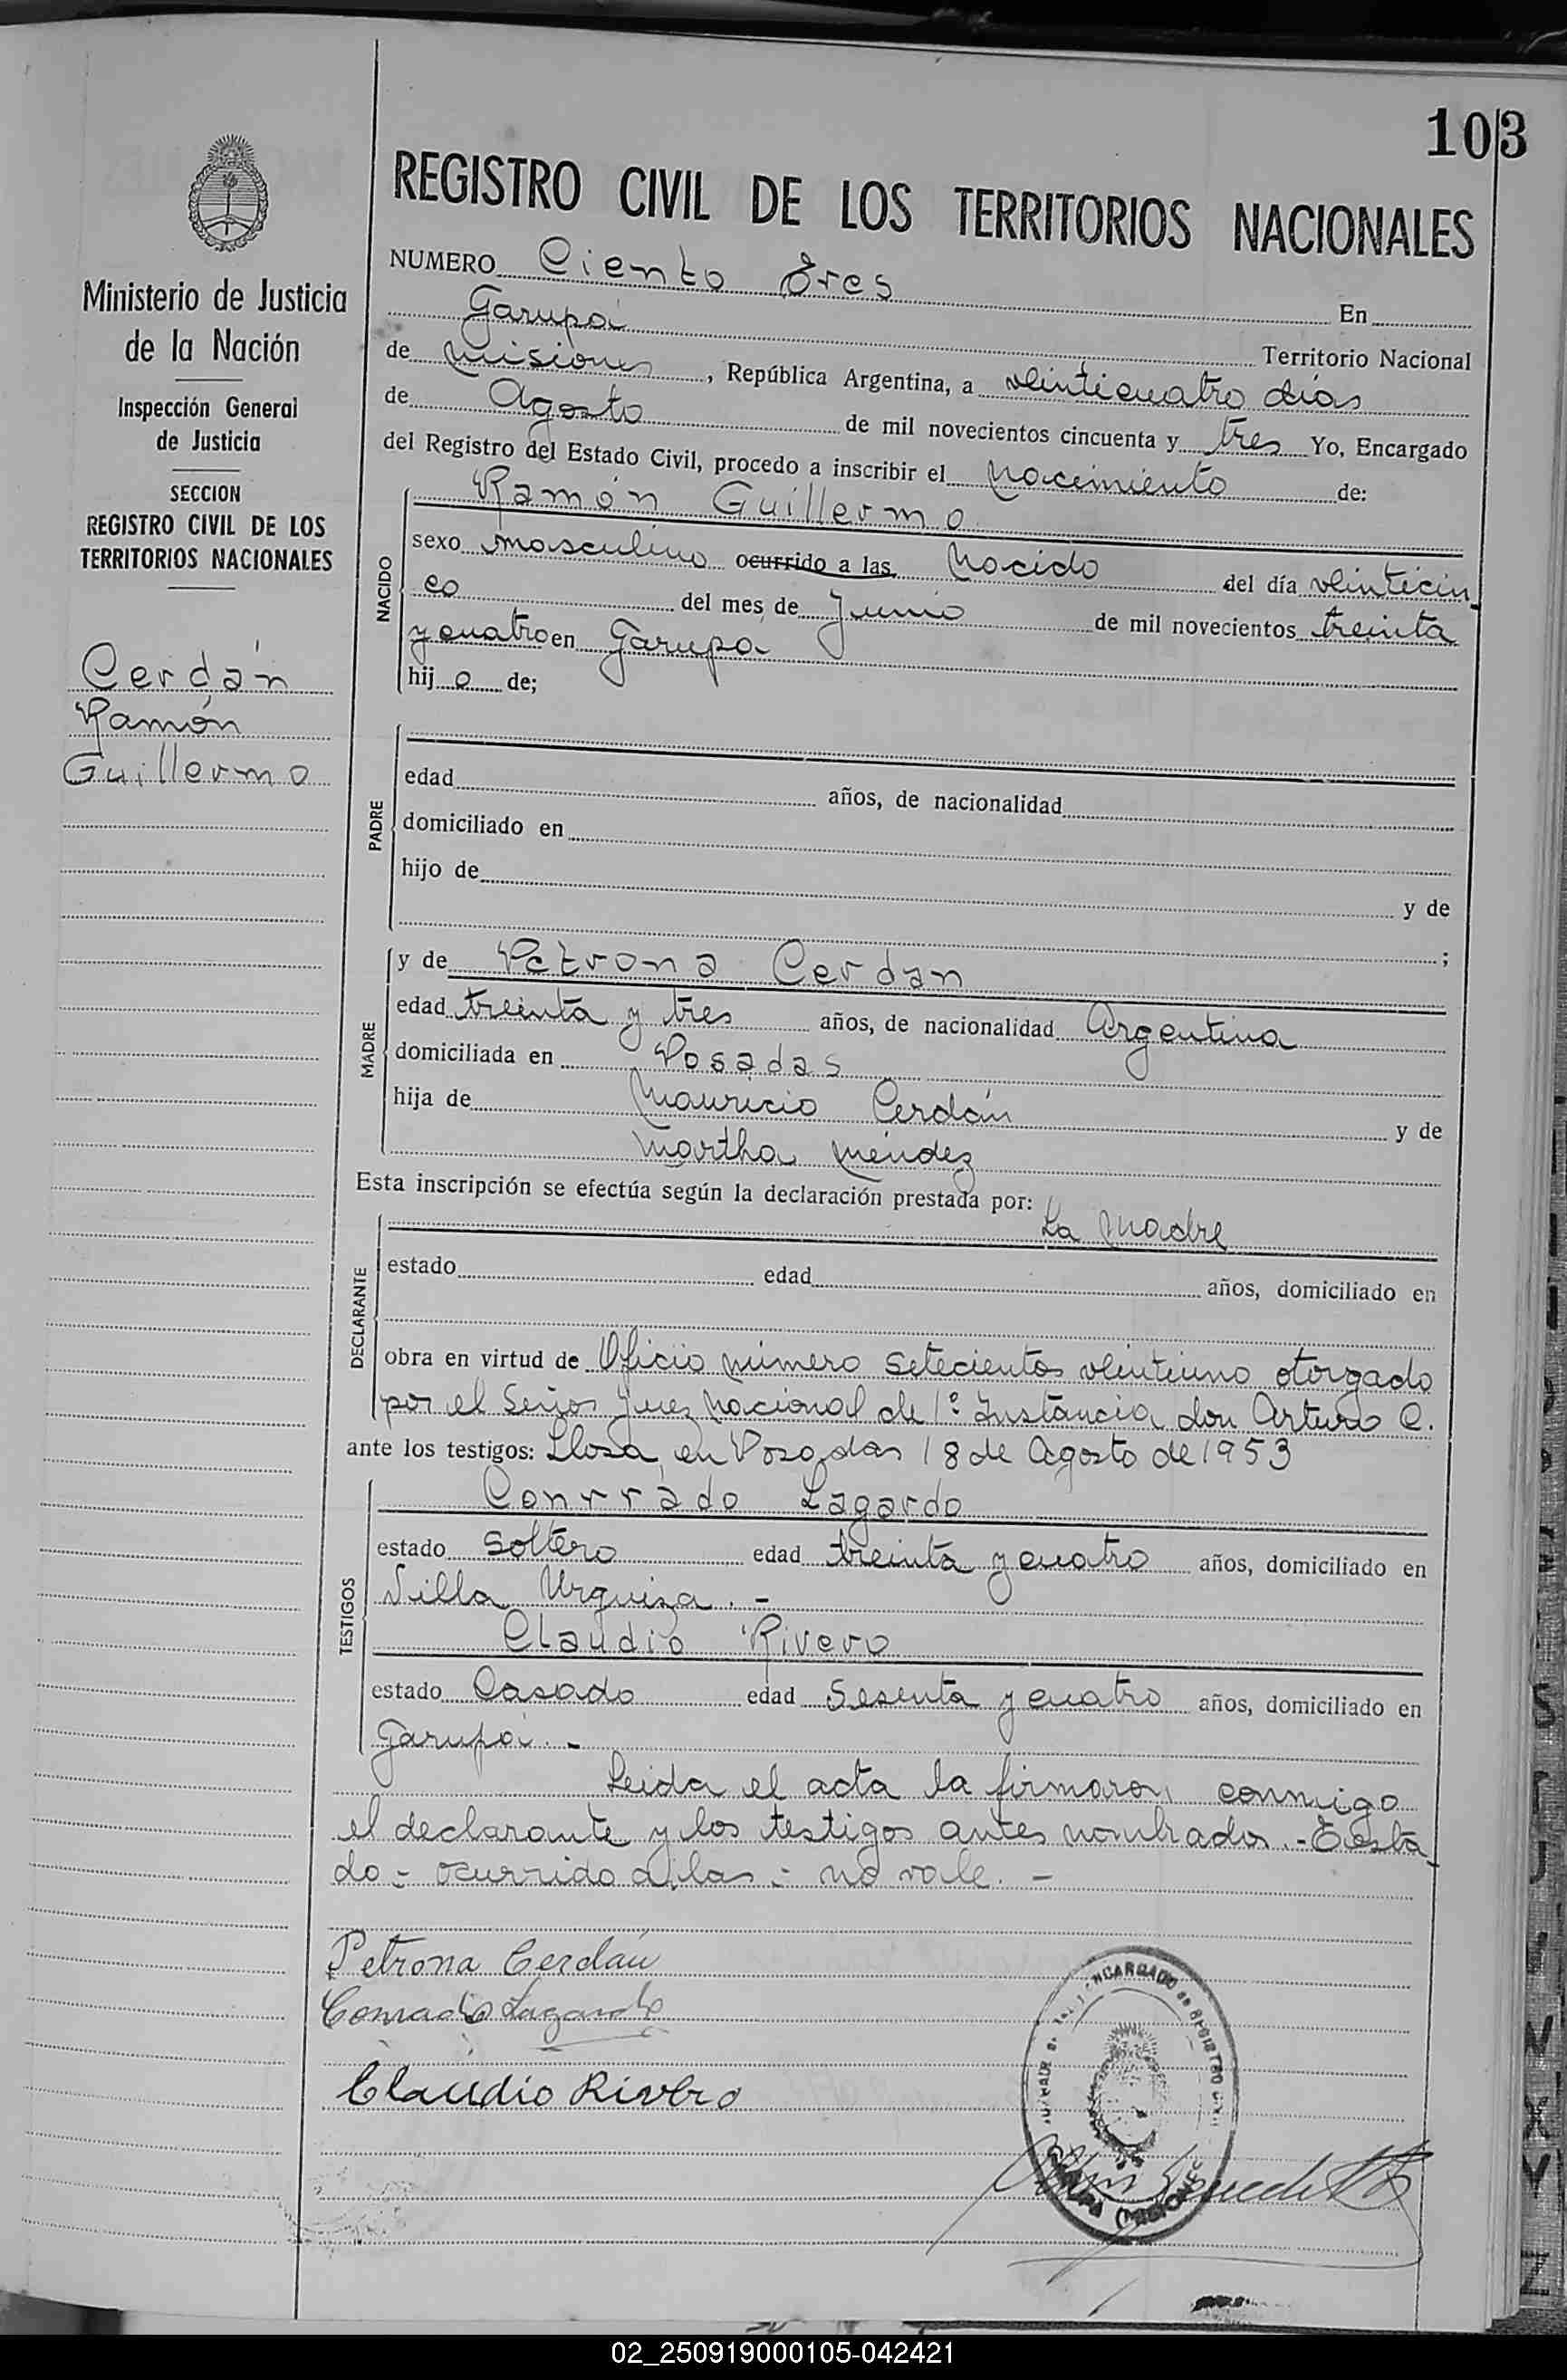 103
REGISTRO CIVIL DE LOS TERRITORIOS NACIONALES
Ministerio de Justicia
de la Nación
Inspección General
de Justicia
SECCION
REGISTRO CIVIL DE LOS
TERRITORIOS NACIONALES
Cerdán
Ramón
Guillermo
NUMERO Ciento Tres
Garupá En
de Misiones Territorio Nacional
, República Argentina, a veinticuatro días
de Agosto de mil novecientos cincuenta y tres Yo, Encargado
del Registro del Estado Civil, procedo a inscribir el Nacimiento de:
NACIDO
Ramón Guillermo
sexo masculino ocurrido a las Nacido del día veinticin
co del mes de Junio de mil novecientos treinta
y cuatro en Garupá
hijo de;
PADRE
edad años, de nacionalidad
domiciliado en
hijo de y de
;
MADRE
y de Petrona Cerdan
edad treinta y tres años, de nacionalidad Argentina
domiciliada en Posadas
hija de Mauricio Cerdán y de
Martha Méndez
Esta inscripción se efectúa según la declaración prestada por:
La Madre
DECLARANTE
estado edad años, domiciliado en
obra en virtud de Oficio número setecientos veintiuno otorgado
por el Señor Juez Nacional de 1º Instancia don Arturo C.
ante los testigos: Llosa, en Posadas 18 de Agosto de 1953
TESTIGOS
Conrrado Lagardo
estado Soltero edad treinta y cuatro años, domiciliado en
Villa Urquiza. -
Claudio Rivero
estado Casado edad Sesenta y cuatro años, domiciliado en
Garupá. -
Leida el acta la firmaron conmigo
el declarante y los testigos antes nombrados. - Testa
do - ocurrido a las - no vale. -
Petrona Cerdán
Conrado Lagardo
Claudio Rivero
ENCARGADO de REGISTRO CIVIL
GARUPA (MISIONES
02_250919000105-042421